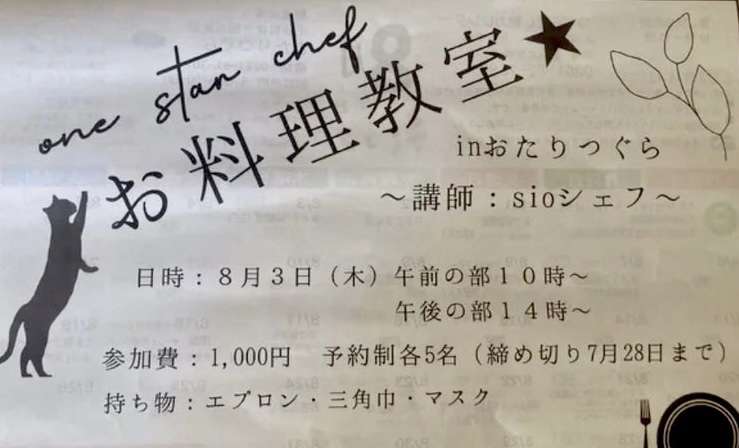 one stan chef
お料理教室★
inおたりつぐら
～講師：sioシェフ～
日時：８月３日（木）午前の部１０時～
午後の部１４時～
参加費：1,000円　予約制各5名（締め切り7月28日まで）
持ち物：エプロン・三角巾・マスク